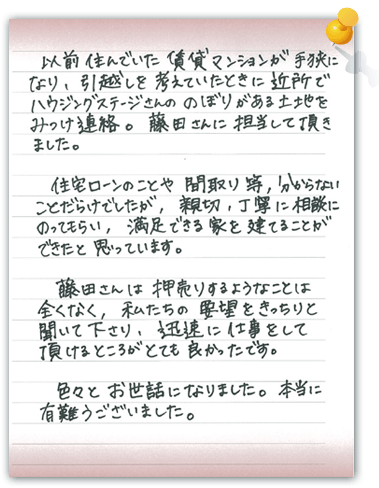 以前住んでいた賃貸マンションが手狭に
なり、引越しを考えていたときに近所で
ハウジングステージさんののぼりがある土地を
みつけ連絡。藤田さんに担当して頂き
ました。
住宅ローンのことや間取り等、分からない
ことだらけでしたが、親切、丁寧に相談に
のってもらい、満足できる家を建てることが
できたと思っています。
藤田さんは押売りするようなことは
全くなく、私たちの要望をきっちりと
聞いて下さり、迅速に仕事をして
頂けるところがとても良かったです。
色々とお世話になりました。本当に
有難うございました。